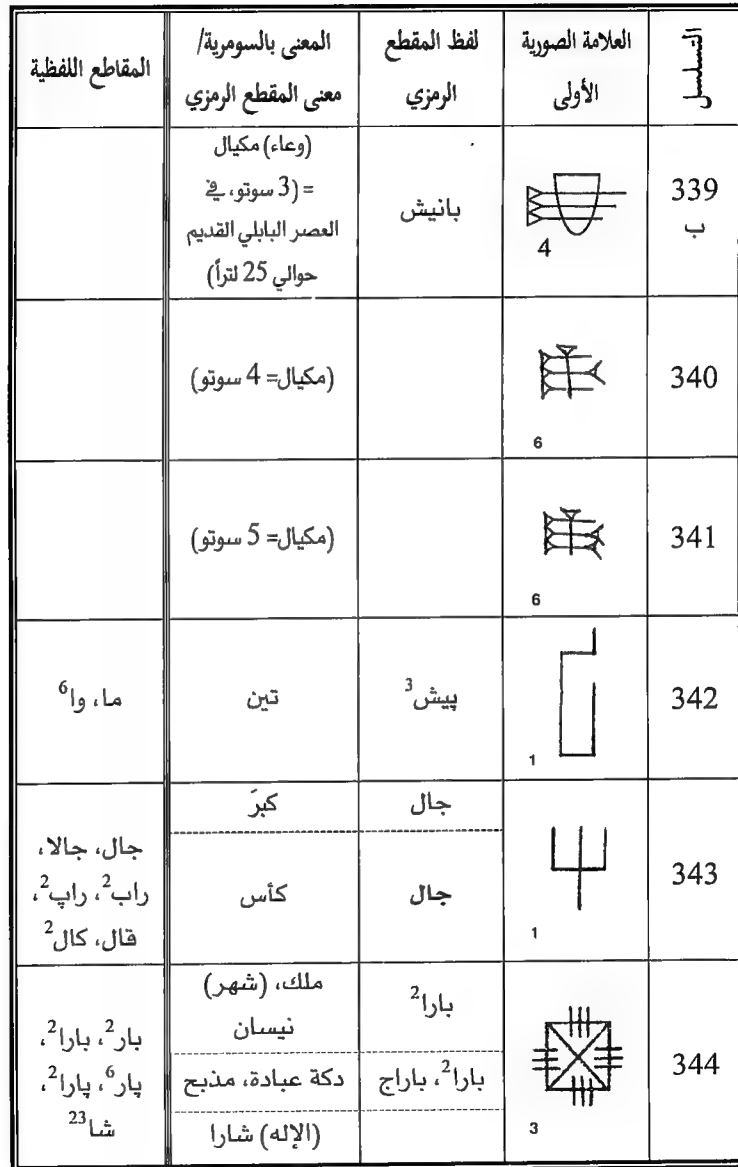 التسلسل
العلامة الصورية
الأولى
لفظ المقطع
الرمزي
المعنى بالسومرية/
معنى المقطع الرمزي
المقاطع اللفظية
339
ب
4
بانيش
(وعاء) مكيال
= (3 سوتو، في
العصر البابلي القديم
حوالي 25 لتراً)
340
6
(مكيال= 4 سوتو)
341
6
(مكيال= 5 سوتو)
342
1
پيش3
تين
ما، وا6
343
1
جال
كبرَ
جال
كأس
جال، جالا،
راب2، راپ2،
قال، كال2
344
3
بارا2
ملك، (شهر)
نيسان
بارا2، باراج
دكة عبادة، مذبح
(الإله) شارا
بار2، بارا2،
پار6، پارا2،
شا23